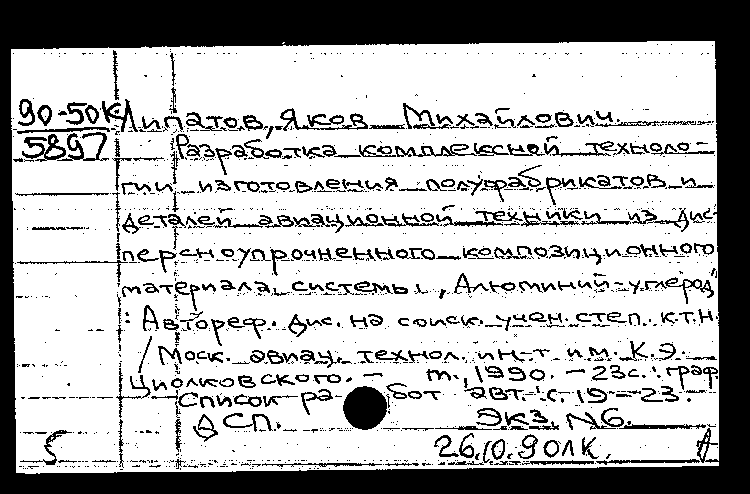 90-50К Липатов, Яков Михайлович.
5897 Разработка комплексной техноло-
гии изготовления полуфабрикатов и
деталей авиационной техники из дис-
персноупрочненного композиционного
материала системы „Алюминий-углерод"
: Автореф. дис. на соиск. учен. степ. к.т.н
/ Моск. авиац. технол. ин-т им. К.Э.
Циолковского. - М., 1990. - 23с. : граф
Список работ авт.: с. 19-23.
ДСП. Экз. №6.
26.10.90ЛК.